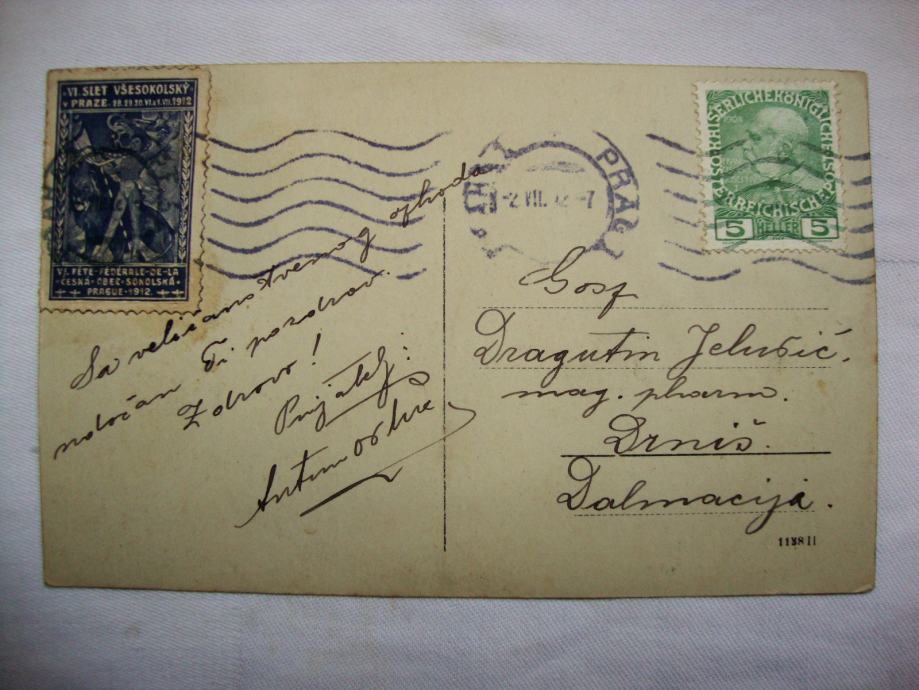 VI. SLET VŠESOKOLSKÝ
V PRAZE 28.29.30.VI.&1.VII.1912
VI. FÊTE FÉDÉRALE DE LA
ČESKÁ OBEC SOKOLSKÁ
PRAGUE 1912
PRAG
2 VII. 12 -7
1908
KAISERLICHE KÖNIGLICHE
ÖSTERREICHISCHE
5 HELLER 5
Sa veličanstvenog ophoda
naročan Ti pozdrav.
Zdravo!
Prijatelj:
Antun
Gosp
Dragutin Jelušić.
mag. pharm.
Drniš.
Dalmacija.
1138 II